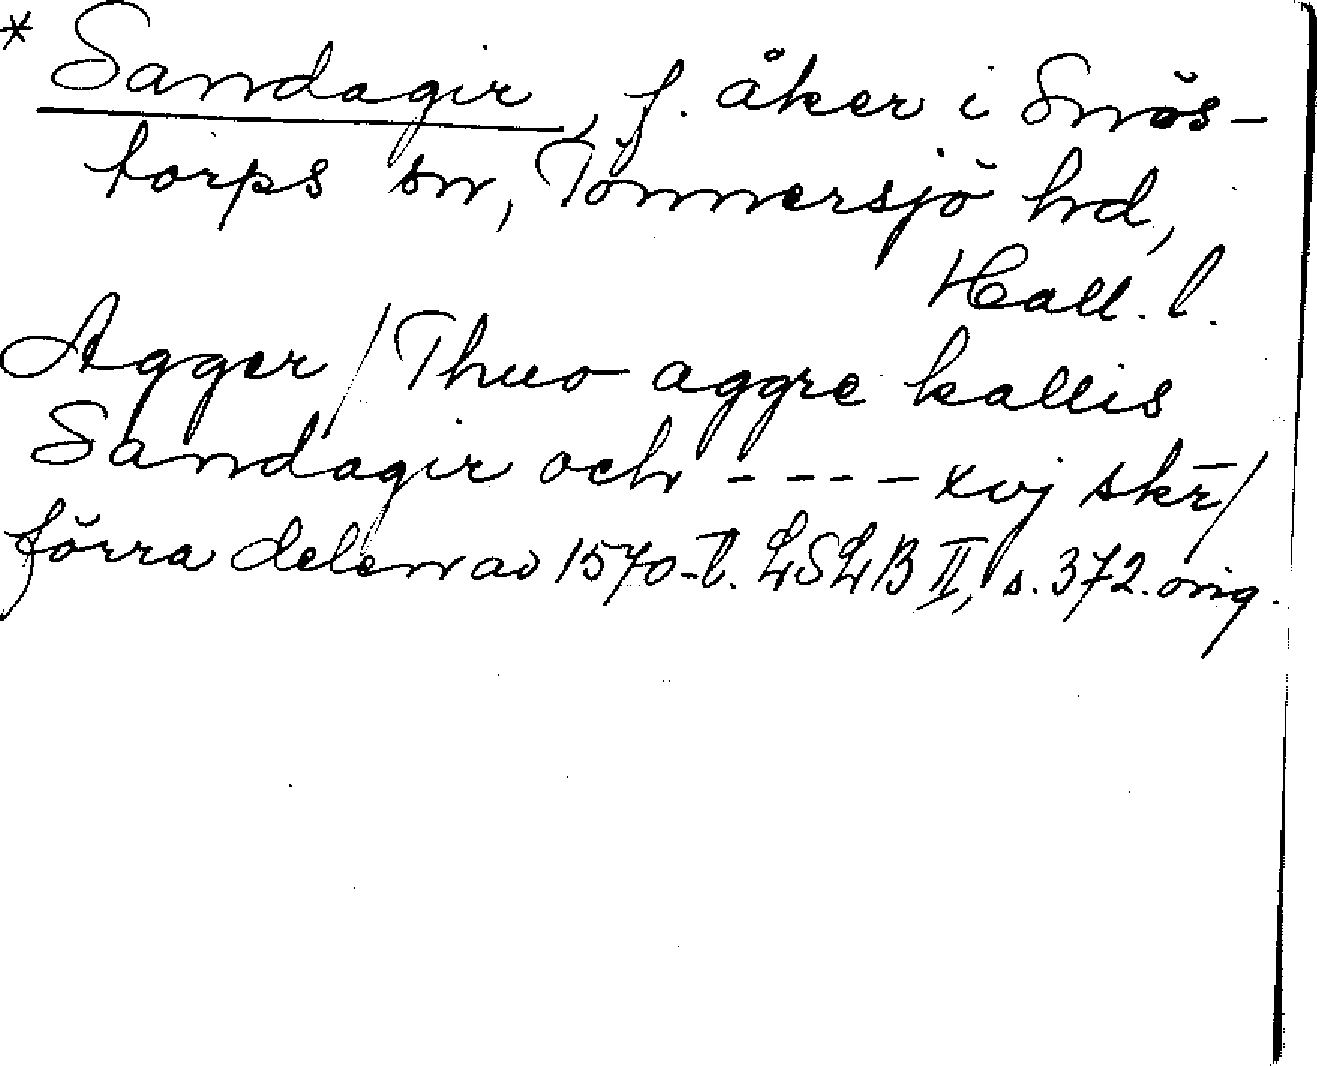 * Sandagir, f. åker i Snös-
torps sn, Tönnersjö hd,
Hall. l.
Agger / Thuo aggre kallis
Sandagir och - - - - xvj skr̄/
förra delen av 1570-t. LSLB II, s. 372. orig.